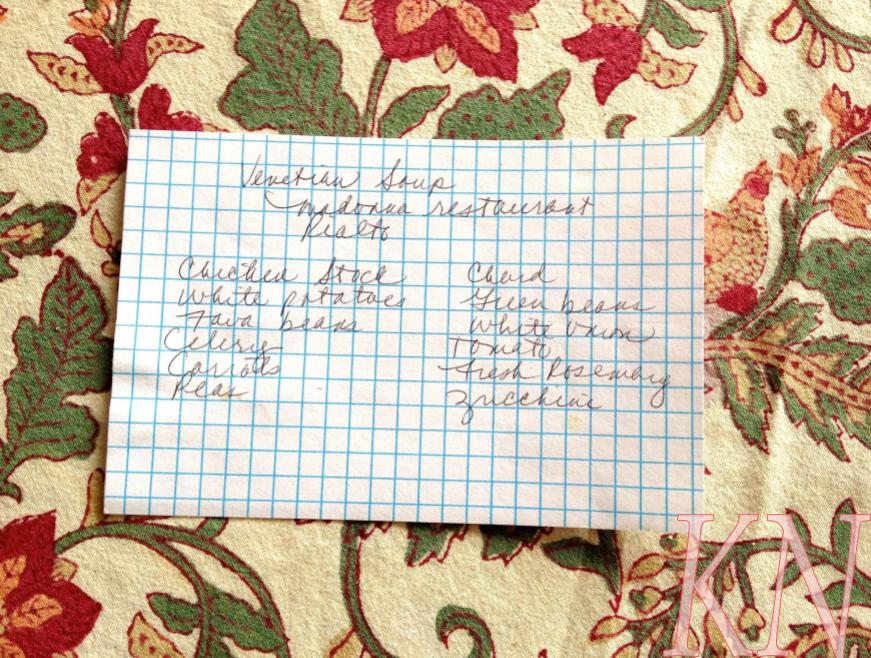 Venetian Soup
Madonna restaurant
Rialto
Chicken Stock
White potatoes
Fava beans
Celery
Carrots
Peas
Chard
Green beans
White Onion
Tomato
Fresh Rosemary
Zucchini
KN